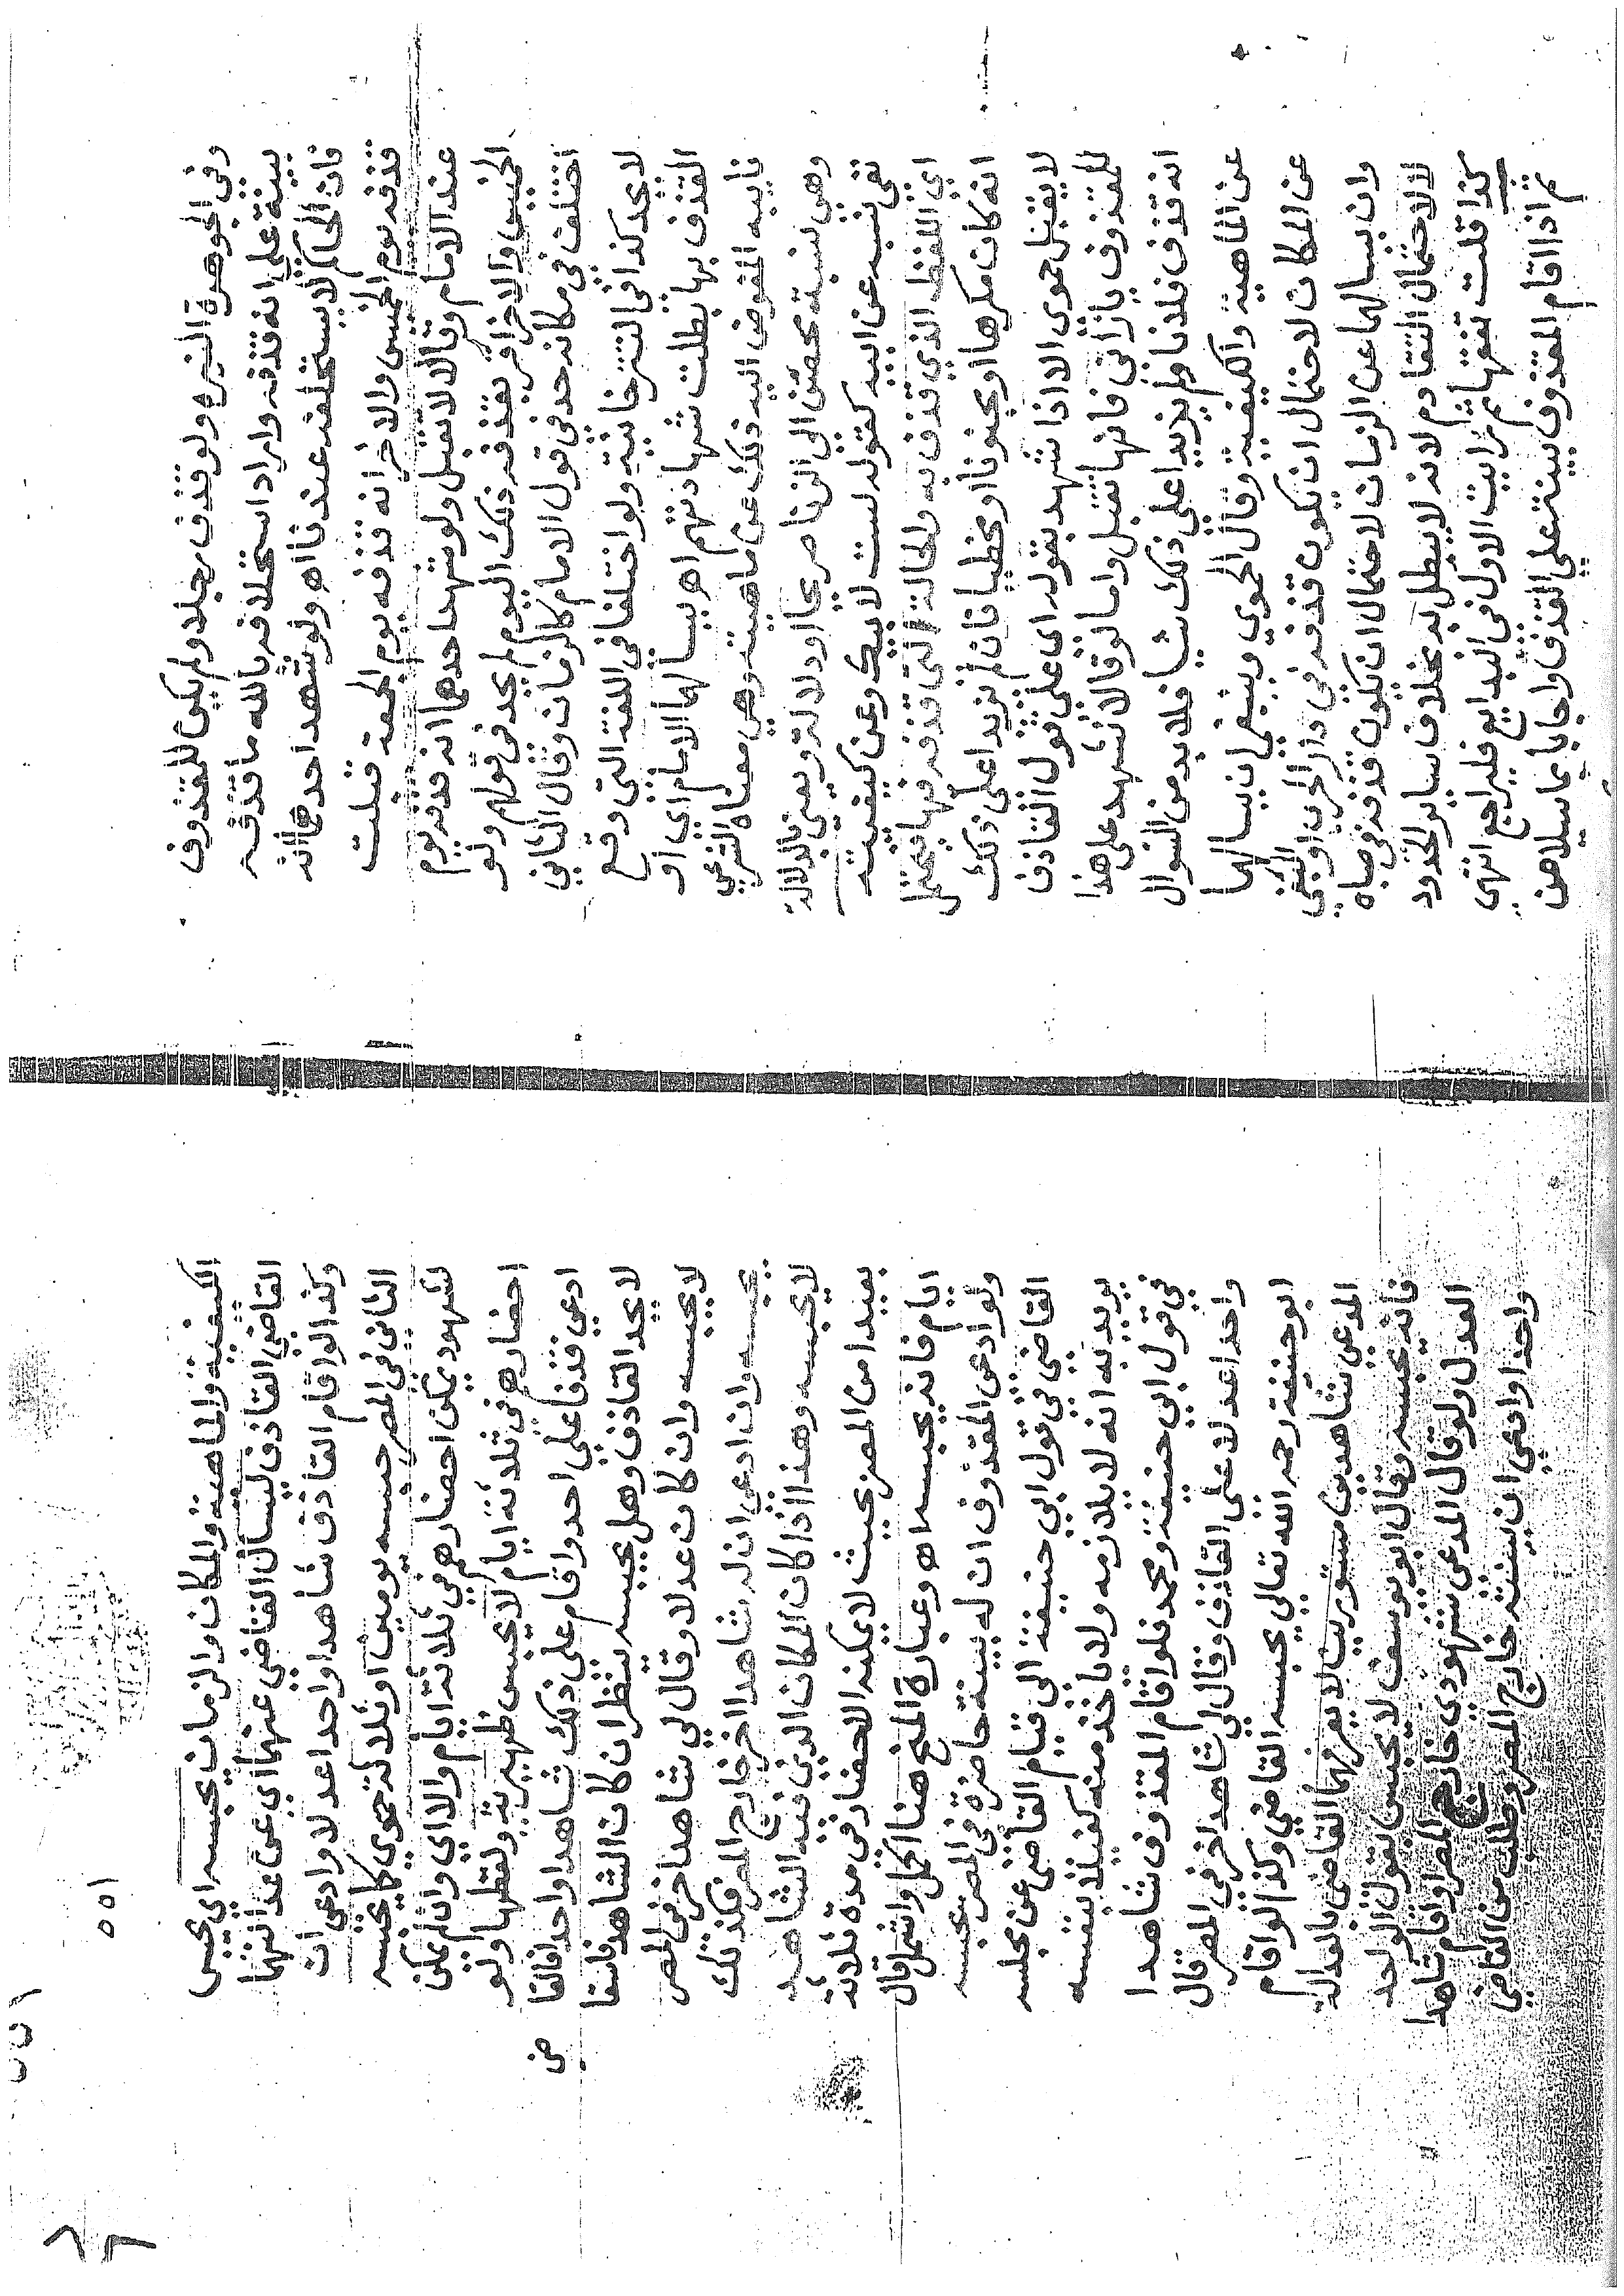 وفي الجوهرة النيره ولو قذف رجلا ولم يكن للمقذوف
بينة على انه قذفه واراد استحلافه بالله ما قذفه
فان الحاكم لا يستحلفه عندنا اه ولو شهد احدهما انه
قذفه يوم الخميس والاخر انه قذفه يوم الجمعة قبلت
عند الامام وقالا لا تقبل ولو شهد احدهما انه قذفه يوم
الخميس والاخر اقر بقذفه ذلك اليوم لم يحد في قولهم ولو
اختلف في مكانه حد في قول الامام كالزمان وقال الثاني
لا يحد كذا في التترخانية ولو اختلفا في اللغة التي وقع
القذف بها بطلت شهادتهم اه يسالهما الامام اي او
نايبه المفوض اليه ذلك عن ماهيته وهي معناه الشرعي
وهي نسبة محصن الى الزنا صريحا او دلالة ويعني بالدلالة
نفي نسبه عن ابيه كقوله لست لابيك وعن كيفيته
اي اللفظ الذي قذف به والحالة التي قذفه فيها فيحتمل
انه كان مكرها او مجنونا او مخطيا فان لم يزيدا على ذلك
لا يقبل حموى الا اذا شهد بقوله اى على قول القاذف
للمقذوف يا زاني فانها تقبل واما لو قالا نشهد على هذا
انه قذف فلانا ولم يزيدا على ذلك شيا فلا بد من السوال
عن الماهية والكيفية وقال الحموي وينبغي ان يسالهما
عن المكان لاحتمال ان يكون قذفه في دار الحرب او البغي
وان يسالهما عن الزمان لاحتمال ان يكون قذفه في صباه
لا لاحتمال التقادم لانه لا يبطل به بخلاف ساير الحدود
كذا قلت تفقها ثم رايت الاول في البدايع فليراجع انتهى
ثم اذا اقام المقذوف بينة على القذف واجابا بما سيلا من
١٥٥
الكيفية والماهية والمكان والزمان يحبسه اي يحبس
القاضي القاذف ليسأل القاضي عنهما اي عن عدالتهما
وكذا لو اقام القاذف شاهدا واحدا عدلا وادعى ان
الثاني في المصر حبسه يومين او ثلاثة حموي كما يحبسه
لشهود يمكن احضارهم في ثلاثة ايام والا اي وان لم يمكن
احضارهم في ثلاثة ايام لا يحبس ظهيرية ولفظها ولو
ادعى قذفا على احد واقام على ذلك شاهدا واحدا فالقا
ضى
لا يحد القاذف وهل يحبسه ينظر ان كان الشاهد فاسقا
لا يحبسه وان كان عدلا وقال لي شاهد اخر في المصر
يحبسه وان ادعى ان له شاهدا اخر خارج المصر فكذلك
لا يحبسه وهذا اذا كان المكان الذي فيه الشاهد
بعيدا من المصر بحيث لا يمكنه الاحضار في مدة ثلاثة
ايام فانه يحبسه اه وعبارة المنح هنا اكمل واشمل قال
ولو ادعى المقذوف ان له بينة حاضرة في المصر يحبسه
القاضي في قول ابي حنيفة الى قيام القاضى عن مجلسه
يريد به انه لا يلازمه ولا ياخذ منه كفيلا بنفسه
في قول ابي حنيفة ومحمد فلو اقام المقذوف شاهدا
واحدا عدلا على القاذف وقال لي شاهد اخر في المصر قال
ابو حنيفة رحمه الله تعالى يحبسه القاضي وكذا لو اقام
المدعى شاهدين مستورين لا يعرفهما القاضي بالعدالة
فانه يحبسه وقال ابو يوسف لا يحبس بقول الواحد
العدل ولو قال المدعى شهودي خارج المصر او اقام شاهدا
واحدا وادعي ان يشهد خارج المصر وطلب من القاضي